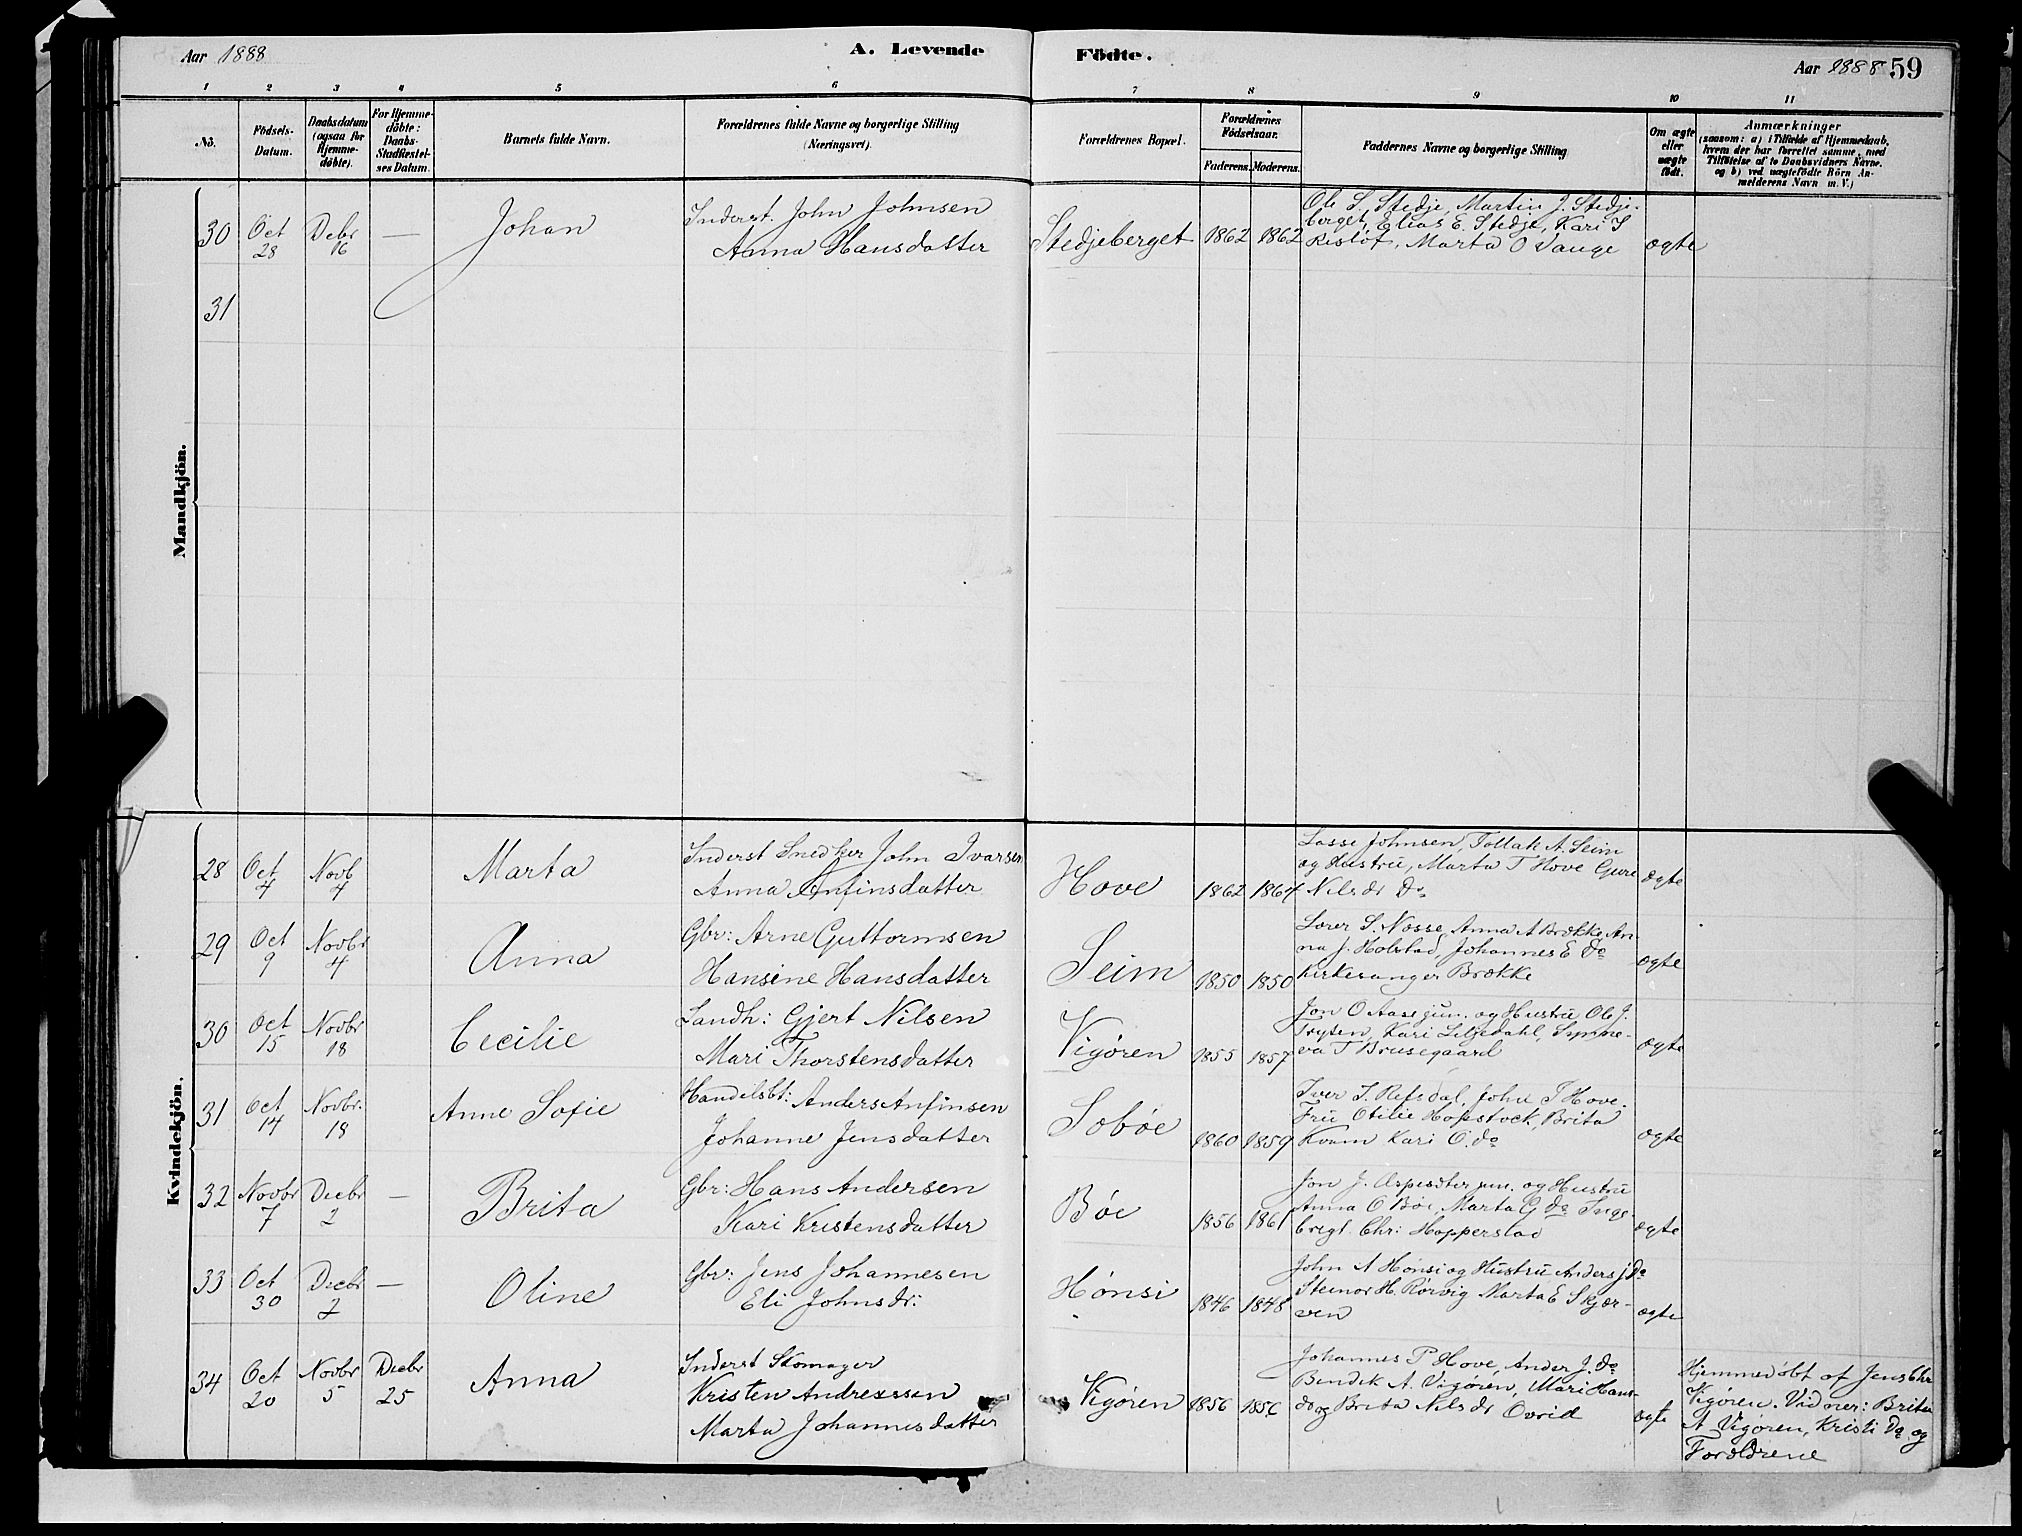 Aar 1888
A. Levende
Födte.
Aar 1888
59
1 2 3 4 5 6 7 8 9 10 11
No.
Födsels-Datum.
Daabsdatum (ogsaa for Hjemme-döbte).
For Hjemme-döbte: Daabs-Stadfæstel-ses Datum.
Barnets fulde Navn.
Forældrenes fulde Navne og borgerlige Stilling (Næringsvei).
Forældrenes Bopæl.
Forældrenes Födselsaar.
Faderens. Moderens.
Faddernes Navne og borgerlige Stilling
Om ægte eller uægte födt.
Anmærkninger
(saasom: a) i Tilfælde af Hjemmedaab,
hvem der har forrettet samme, med
Tilföielse af to Daabsvidners Navne.
og b) ved uægtefödte Börn An-
melderens Navn m. V.)
Mandkjön.
30 Oct 28 Debr 16 — Johan
Inderst. John Johnsen
Anna Hansdatter
Stedjeberget 1862 1862
Ole L. Stedje, Martin J. Stedje-
berget, Elias E. Stedje, Kari S
Marta O
ægte
31
Kvindekjön.
28 Oct 4 Novb 4 Marta
Inderst Snedker John Ivarsen
Anna Anfinsdatter
Hove 1862 1864
Lasse Johnsen, Tollak A. Seim
og Hustru, Marta T Hove Gure
Nilsdr Do
ægte
29 Oct 9 Novbr 4 Anna
Gbr: Arne Guttormsen
Hansine Hansdatter
Seim 1850 1850
Lærer S. Nosse, Anna A Brække, An-
na J. Holstad, Johannes E do
Kirkesanger Brække
ægte
30 Oct 15 Novbr 18 Cecilie
Landh: Gjert Nilsen
Mari Thorstensdatter
Vigøren 1855 1857
Jon O Aase jun. og Hustru Ole J.
Tryten, Kari Liljedahl, Synne-
va T Brusegaard
ægte
31 Oct 14 Novbr. 18 Anne Sofie
Handelsbt: Anders Anfinsen
Johanne Jensdatter
Sobøe 1860 1859
Iver I. Refsdal, John T Hove.
Fru Otilie Hopstock, Brita
Kvam Kari O. do
ægte
32 Novbr 7 Decbr 2 — Brita
Gbr: Hans Andersen
Kari Kristensdatter
Bøe 1856 1861
Jon J. jun. og Hustru
Anna O Bøe, Marta G do Inge-
brigt Chr: Hopperstad
ægte
33 Oct 30 Decbr 2 — Oline
Gbr: Jens Johannesen
Eli Johnsdr:
Hønsi 1846 1848
John A Hønsi og Hustru, Anders J Do
Steinor H. Rørvig Marta E Skjær-
ven
ægte
34 Oct 20 Novbr 5 Decbr 25 Anna
Inderst Skomager
Kristen Andreassen
Marta Johannesdatter
Vigøren 1856 1856
Johannes P Hove, Ander J. do
Bendik A. Vigøren, Mari Hans-
d og Brita Nilsdr Ovrid
ægte
Hjemmedøbt af Jens Chr
Vigøren. Vidner: Brita
A Vigøren, Kristi Do. og
Forældrene